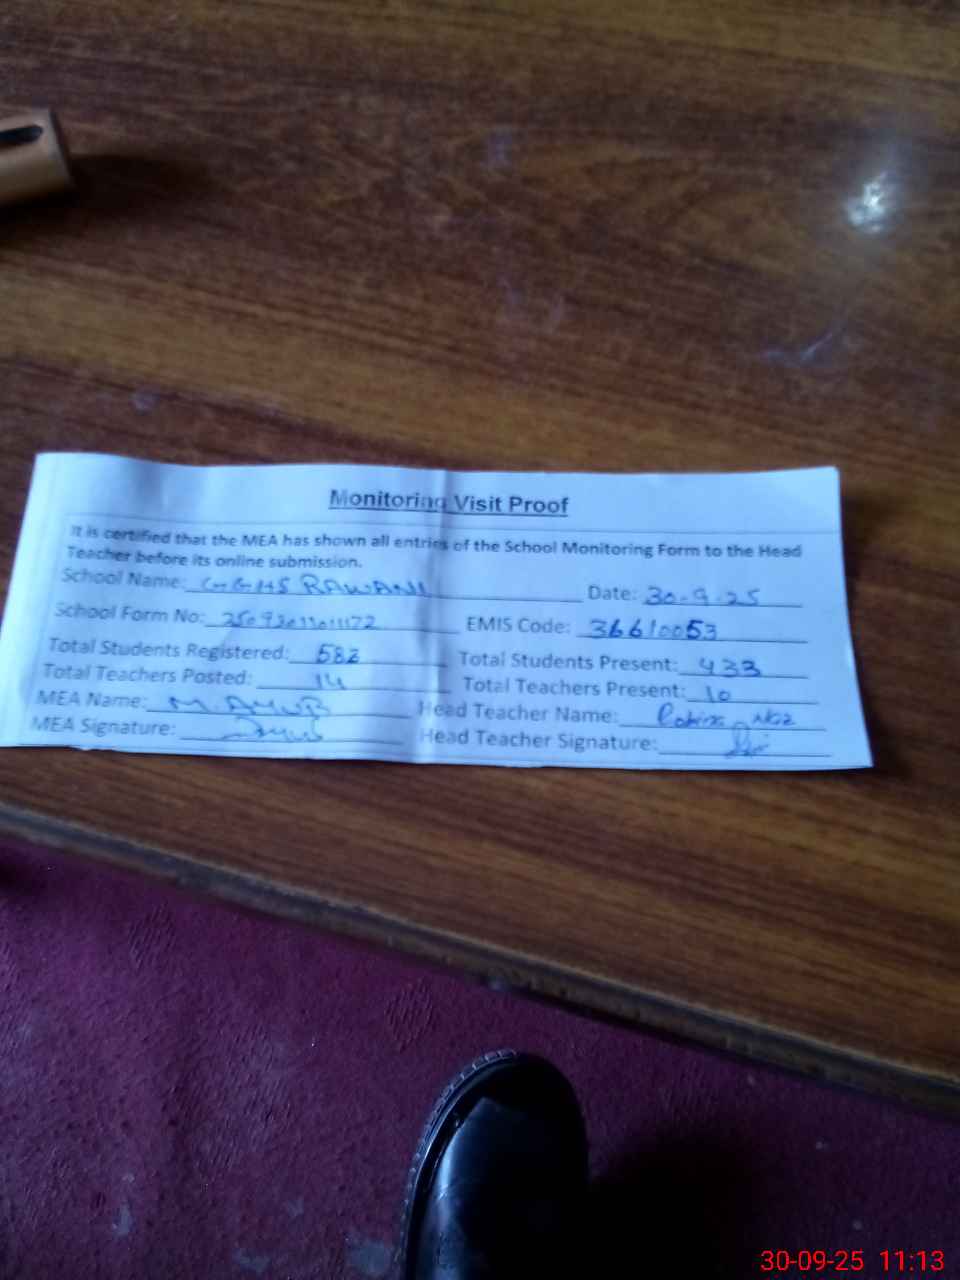 Monitoring Visit Proof
It is certified that the MEA has shown all entries of the School Monitoring Form to the Head
Teacher before its online submission.
School Name: GGHS RAWANI Date: 30-9-25
School Form No: EMIS Code: 36610053
Total Students Registered: 582 Total Students Present: 433
Total Teachers Posted: 14 Total Teachers Present: 10
MEA Name: M. AYUB Head Teacher Name:
MEA Signature: Head Teacher Signature:
30-09-25 11:13